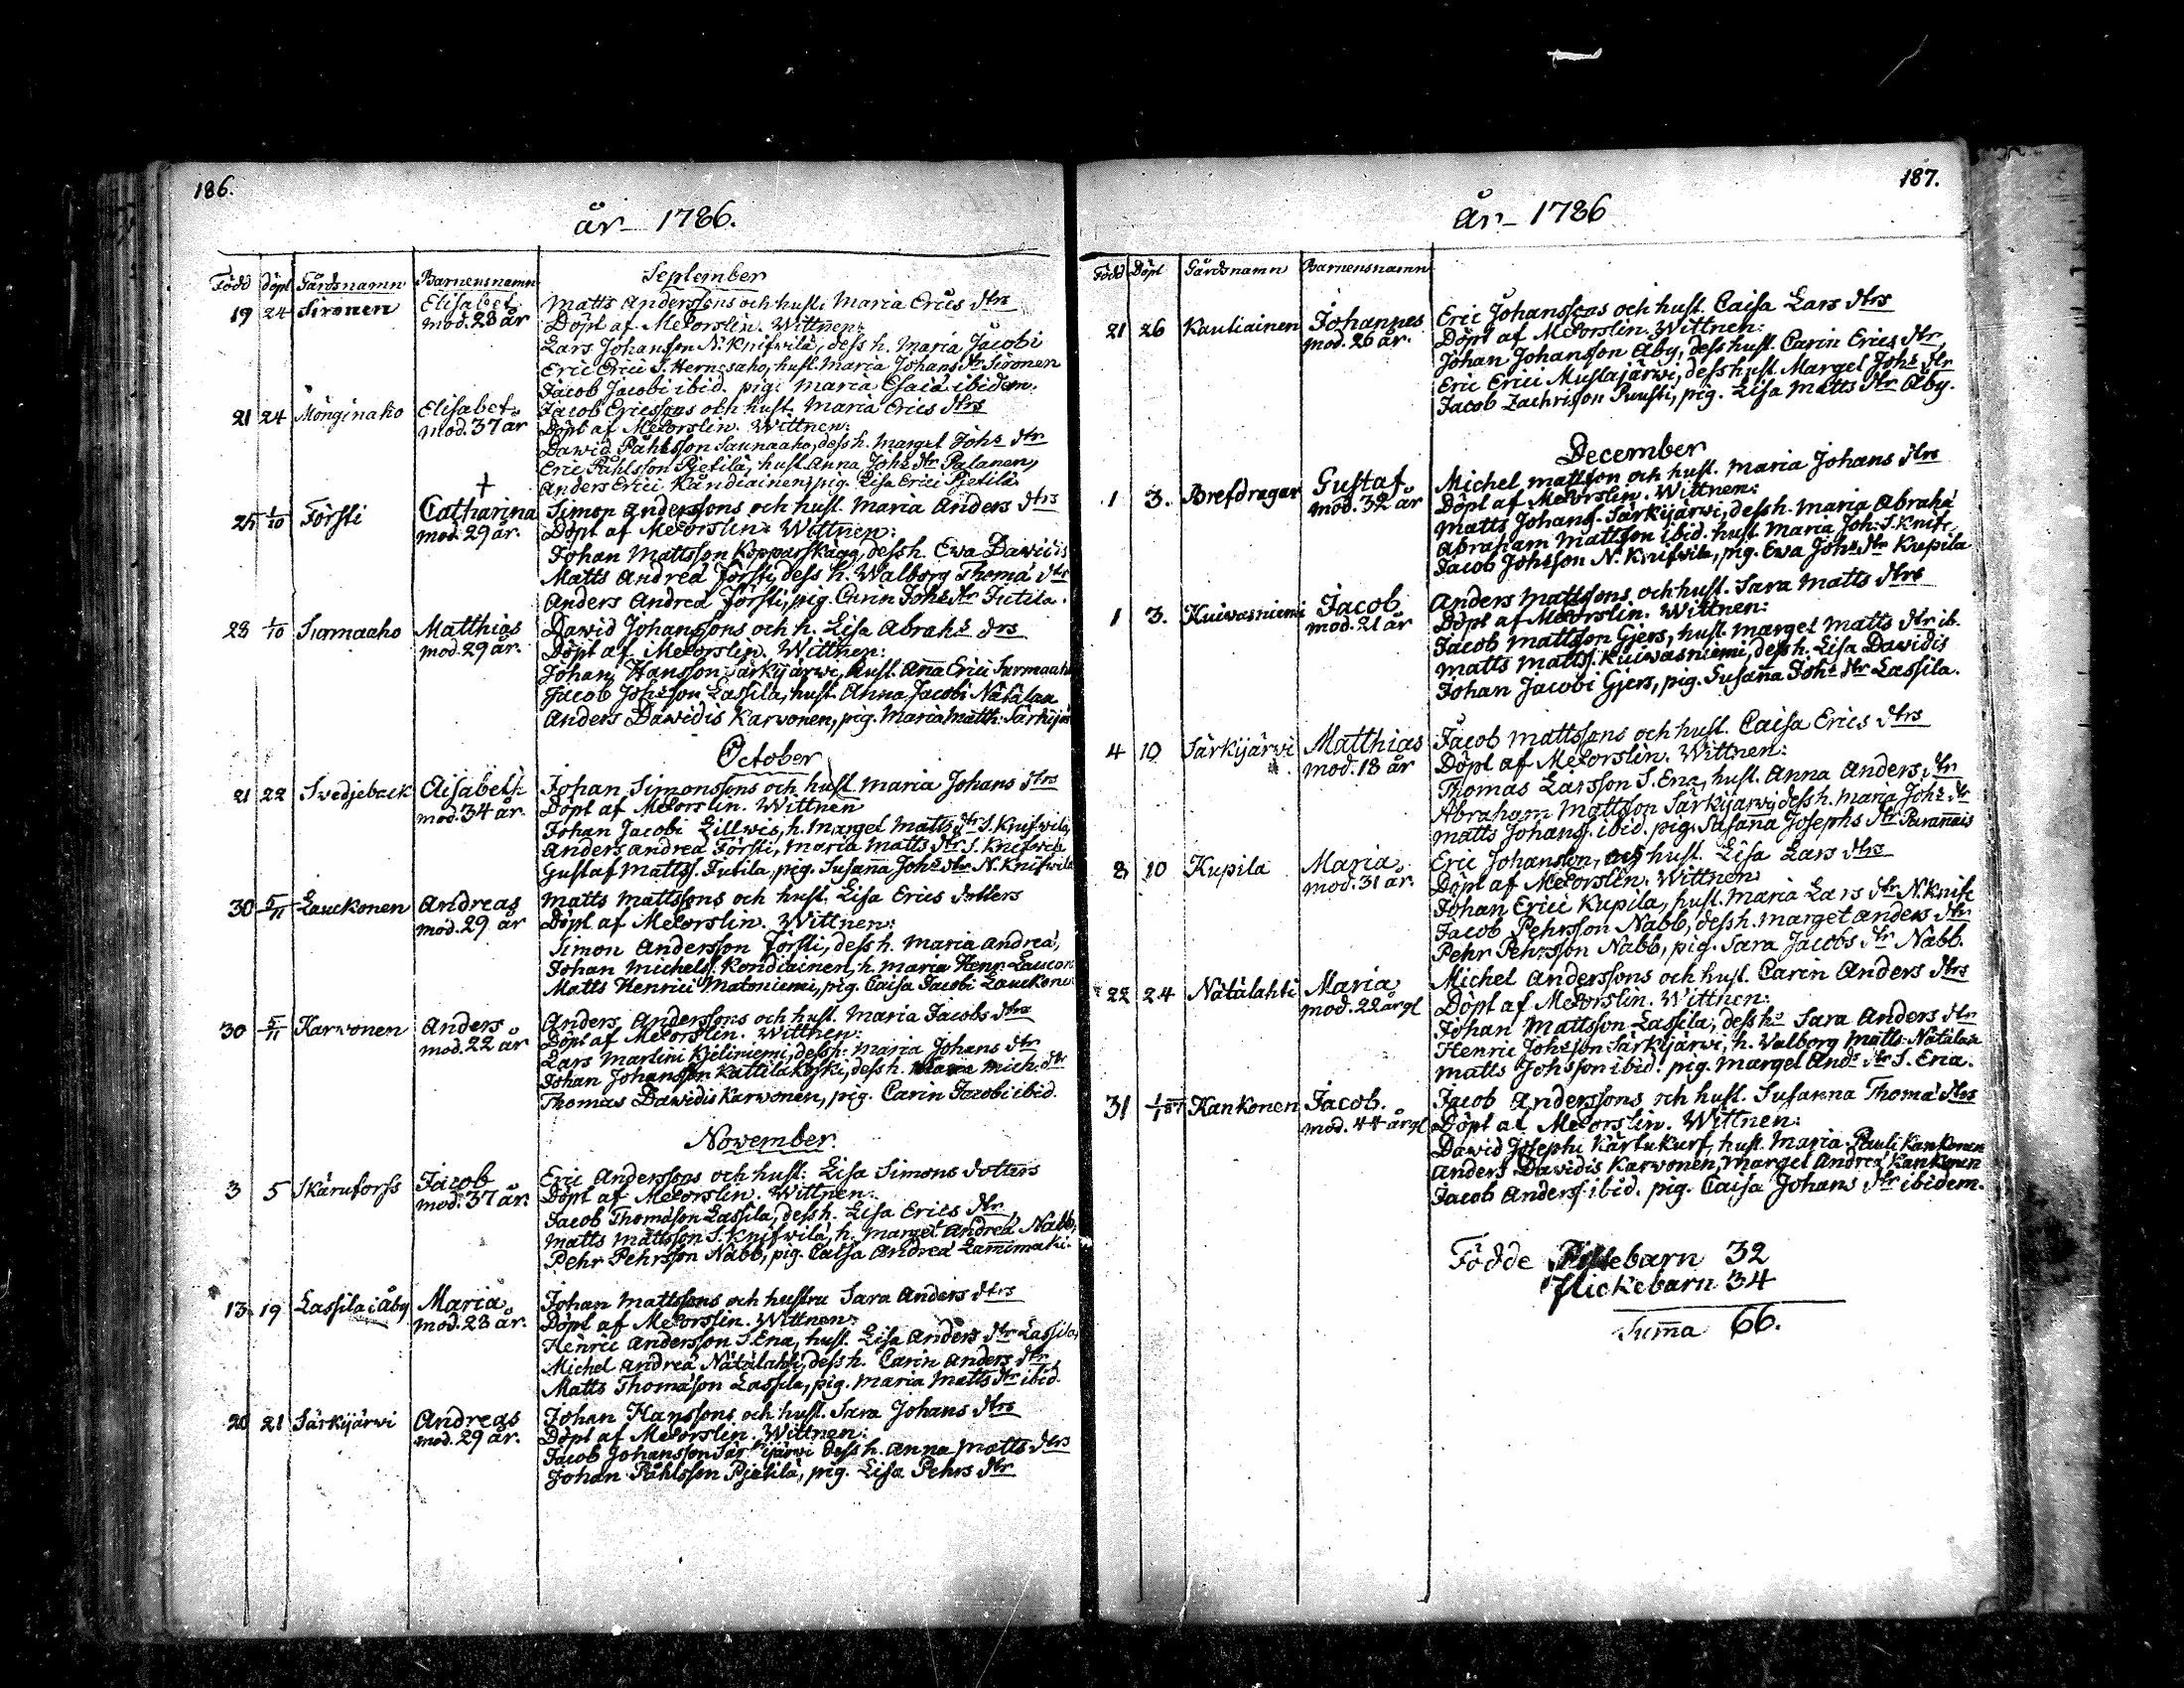 186.
år 1786.
Född Döpt Gårdsnamn Barnensnamn
September
19 24 Sironen Elisabet
mod. 28 år
Matts Anderssons och hust. Maria Erics dtrs
Döpt af Meðorslin. Wittnen:
Lars Johansson N. Knifwilä, dess h. Maria Jacobi
Eric Erici S. Hernesaho, hust. Maria Johans dtr Sironen
Jacob Jacobi ibid. pig. Maria Esaiæ ibidem.
21 24 Mönginaho Elisabet
mod. 37 år
Jacob Ericssons och hust. Maria Erics dtrs
Döpt af Meðorslin. Wittnen:
Dawid Påhlsson Saunaaho, dess h. Marget Johs dtr
Eric Påhlsson Pjetilä, hust. Anna Johs dtr Palanen,
Anders Erici Kåndiainen, pig. Lisa Erici Pjetilä
25 1/10 Försti † Catharina
mod. 29 år.
Simon Anderssons och hust. Maria Anders dtrs
Döpt af Meðorslin. Wittnen:
Johan Mattsson Kopparskägg, dess h. Ewa Dawidis
Matts Andreæ Försti, dess h. Walborg Thomæ dtr
Anders Andreæ Försti, pig. Carin Johs dtr Jutila.
28 1/10 Surmaaho Matthias
mod. 29 år.
Dawid Johanssons och h. Lisa Abrahs dtrs
Döpt af Meðorslin. Wittnen:
Johan Hansson Särkijärwi, hust. Anna Erici Surmaaho
Jacob Johsson Lassila, hust. Anna Jacobi Nätälax
Anders Dawidis Karwonen, pig. Maria Matth. Särkijär
October
21 22 Swedjeback Elisabeth
mod. 34 år.
Johan Simonssons och hust. Maria Johans dtrs
Döpt af Meðorslin. Wittnen
Johan Jacobi Lillwis, h. Marget Matts dtr S. Knifwila
Anders Andreæ Försti, Maria Matts dtr S. Knifwila
Gustaf Mattss. Jutila, pig. Susanna Johs dtr N. Knifwila
30 5/11 Lauckonen Andreas
mod. 29 år
Matts Mattssons och hust. Lisa Erics dotters
Döpt af Meðorslin. Wittnen:
Simon Andersson Försti, dess h. Maria Andreæ,
Johan Michelss. Kondiainen, h. Maria Henr. Laucon
Matts Henrici Matoniemi, pig. Caisa Jacobi Lauckone
30 5/11 Karwonen Anders
mod. 22 år
Anders Anderssons och hust. Maria Jacobs dtrs
Döpt af Meðorslin. Wittnen:
Lars Martini Kjeliniemi, dess h. Maria Johans dtr
Johan Johansson Kattilakoski, dess h. Maria Mich. dtr
Thomas Dawidis Karwonen, pig. Carin Jacobi ibid.
November
3 5 Skäruforss Jacob
mod. 37 år.
Eric Anderssons och hust. Lisa Simons dotters
Döpt af Meðorslin. Wittnen:
Jacob Thomæson Lassila, dess h. Lisa Erics dtr,
Matts Mattsson S. Knifwilä, h. Marget Andreæ Nabb,
Pehr Pehrsson Nabb, pig. Caisa Andreæ Lammimaki.
13 19 Lassila i Åby Maria
mod. 28 år.
Johan Mattssons och hustru Sara Anders dtrs
Döpt af Meðorslin. Wittnen:
Henric Andersson S. Ena, hust. Lisa Anders dtr Lassila,
Michel Andreæ Nätälahti, dess h. Carin Anders dtr,
Matts Thomæson Lassila, pig. Maria Matts dtr ibid.
20 21 Särkijärwi Andreas
mod. 29 år.
Johan Hanssons och hust. Sara Johans dtrs
Döpt af Meðorslin. Wittnen:
Jacob Johansson Särkijärwi dess h. Anna Matts dtrs
Johan Påhlsson Pjetilä, pig. Lisa Pehrs dtr
187.
År 1786
Född Döpt Gårdsnamn Barnensnamn
21 26 Kauliainen Johannes
mod. 26 år.
Eric Johanssons och hust. Caisa Lars dtrs
Döpt af Meðorslin. Wittnen:
Johan Johansson Åby, dess hust. Carin Erics dtr,
Eric Erici Mustajärwi, dess hust. Marget Johs dtr
Jacob Zachrisson Puusti, pig. Lisa Matts dtr Åby.
December
1 3. Brefdragar Gustaf
mod. 32 år
Michel Mattsson och hust. Maria Johans dtrs
Döpt af Meðorslin. Wittnen:
Matts Johans. Särkijärwi, dess h. Maria Abrahæ
Abraham Mattsson ibid. hust. Maria Joh. S. Knifr,
Jacob Johsson N. Knifwila, pig. Ewa Johs dtr Kupila
1 3. Kuiwasniemi Jacob
mod. 21 år
Anders Mattssons och hust. Sara Matts dtrs
Döpt af Meðorslin. Wittnen:
Jacob Mattsson Gjers, hust. Marget Matts dtr ib.
Matts Matts. Kuiwasniemi, dess h. Lisa Dawidis
Johan Jacobi Gjers, pig. Susanna Johs dtr Lassila.
4 10 Särkijärwi Matthias
mod. 18 år
Jacob Mattssons och hust. Caisa Erics dtrs
Döpt af Meðorslin. Wittnen:
Thomas Larsson S. Ena, hust. Anna Anders dtr
Abraham Mattsson Särkijärwi, dess h. Maria Johs dtr
Matts Johanss. ibid. pig. Susanna Josephs dtr
8 10 Kupila Maria
mod. 31 år.
Eric Johansson, och hust. Lisa Lars dtrs
Döpt af Meðorslin. Wittnen:
Johan Erici Kupila, hust. Maria Lars dtr N. Knifr
Jacob Pehrsson Nabb, dess h. Marget Anders dtr
Pehr Pehrsson Nabb, pig. Sara Jacobs dtr Nabb.
22 24 Nätälahti Maria
mod. 22 årgl
Michel Anderssons och hust. Carin Anders dtrs
Döpt af Meðorslin. Wittnen:
Johan Mattsson Lassila, dess hs Sara Anders dtr
Henric Johsson Särkijärwi, h. Walborg Matts Nätälax
Matts Johsson ibid. pig. Marget Ands dtr S. Ena.
31 1/1 87 Kankonen Jacob.
mod. 44 årgl
Jacob Anderssons och hust. Susanna Thomæ dtrs
Döpt af Meðorslin. Wittnen:
Dawid Josephi Kärtukurf, hust. Maria Pauli Kankonen
Anders Dawidis Karwonen, Marget Andreæ Kankonen
Jacob Anderss. ibid. pig. Caisa Johans dtr ibidem.
Födde Piltebarn 32
Flickebarn 34
Summa 66.